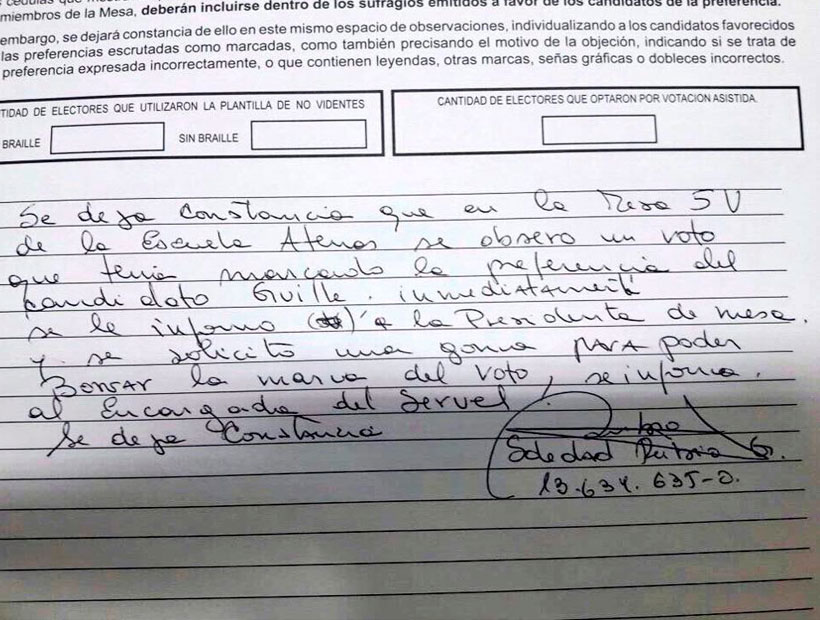 miembros de la Mesa, deberán incluirse dentro de los sufragios emitidos a favor de los candidatos de la preferencia.
embargo, se dejará constancia de ello en este mismo espacio de observaciones, individualizando a los candidatos favorecidos
las preferencias escrutadas como marcadas, como también precisando el motivo de la objeción, indicando si se trata de
preferencia expresada incorrectamente, o que contienen leyendas, otras marcas, señas gráficas o dobleces incorrectos.
TIDAD DE ELECTORES QUE UTILIZARON LA PLANTILLA DE NO VIDENTES
BRAILLE SIN BRAILLE
CANTIDAD DE ELECTORES QUE OPTARON POR VOTACION ASISTIDA.
Se deja Constancia que en la Mesa 5 V
de la Escuela Atenas se observo un voto
que tenia marcando la preferencia del
Candidato Guille. inmediatamente
se le informo a la Presidenta de mesa.
y se solicito una goma PARA poder
Borrar la marca del voto, se informa.
al Encargado del Servel.
Se deja Constancia
Soledad G.
13.634.635-0.